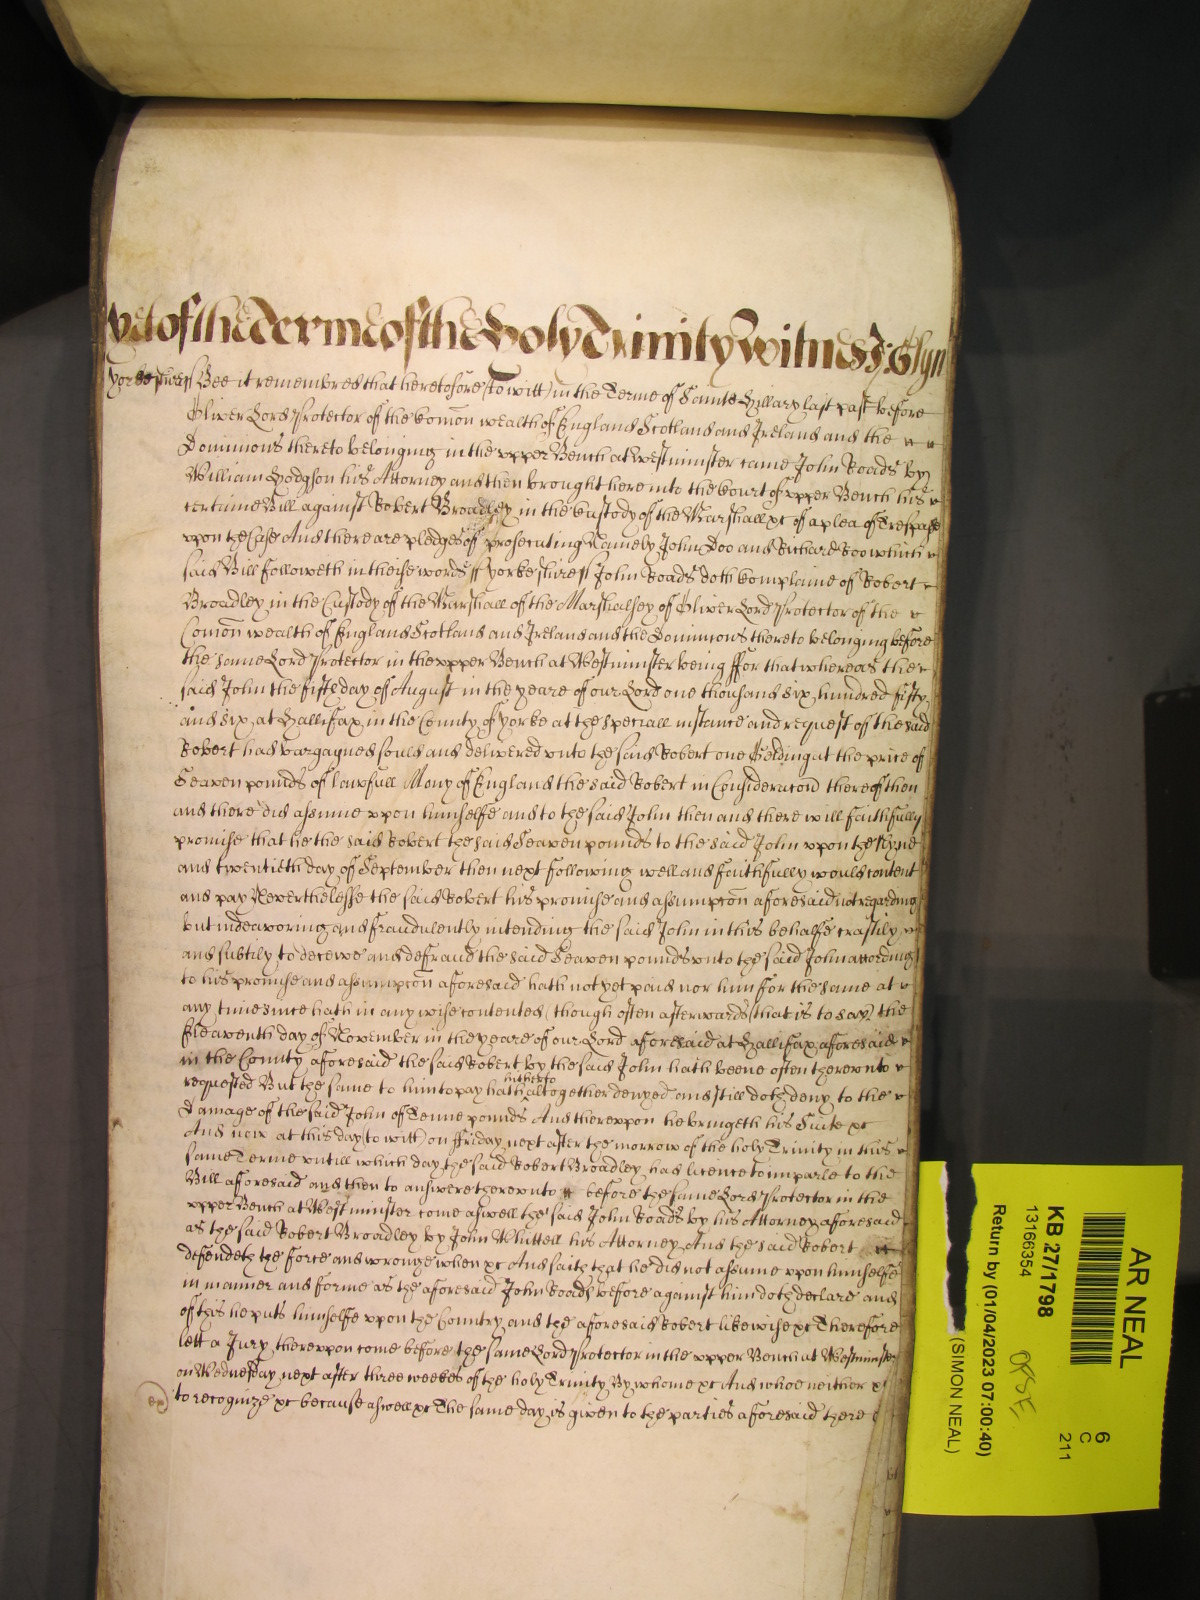 Yet of the Terme of the Holy Trinity Witnes J: Glyn
Yorkeshire ss Bee it remembred that heretofore (to witt) in the Terme of Sainte Hillary last past before
Oliver Lord Protector of the Comōn wealth of England Scotland and Ireland and the
Dominions thereto belonging in the upper Bench at Westminster came John Roads by
William Hodgson his Attorney and then brought here into the Court of upper Bench his
certaine Bill against Robert Broadley in the Custody of the Marshall xc of a plea of Trespasse
upon the Case And there are pledges off prosecuting Namely John Doo and Richard Roo which
said Bill followeth in theise words ss Yorkeshire ss John Roads doth Complaine of Robert
Broadley in the Custody of the Marshall of the Marshalsey of Oliver Lord Protector of the
Comōn wealth of England Scotland and Ireland and the Dominions thereto belonging before
the same Lord Protector in the upper Bench at Westminster being ffor that whereas the
said John the fifth day of August in the yeare of our Lord one thousand six hundred fifty
and six at Hallifax in the County of Yorke at the speciall instance and request of the said
Robert had bargagned sould and delivered unto the said Robert one Gelding at the price of
Seaven pounds of lawfull Mony of England the said Robert in Consideracōn thereof then
and there did assume upon himselfe and to the said John then and there will faithfully
promise that he the said Robert the said Seaven pounds to the said John upon the Nyne
and twentieth day of September then next following well and faithfully would content
and pay Neverthelesse the said Robert his promise and assumpcōn aforesaid not regarding
but indeavoring and fraudulently intending the said John in this behalfe craftily
and subtily to deceive and defraud the said Seaven pounds unto the said John according
to his promise and assumpcōn aforesaid hath not yet paid nor him for the same at
any time since hath in any wise contented (though often afterwards (that is to say) the
Eleaventh day of November in the yeare of our Lord aforesaid at Hallifax aforesaid
in the County aforesaid the said Robert by the said John hath beene often thereunto
requested But the same to him to pay hath hitherto altogether denyed and still doth deny to the
Damage of the said John of Tenne pounds And thereupon he bringeth his Suite xc
And now at this day (to witt) on ffriday next after the morrow of the holy Trinity in this
same Terme untill which day the said Robert Broadley had licence to imparle to the
Bill aforesaid and then to answere thereunto before the same Lord Protector in the
upper Bench at Westminster come aswell the said John Roads by his Attorney aforesaid
as the said Robert Broadley by John Whittell his Attorney And the said Robert
defendeth the force and wronge when xc And saith that he did not assume upon himselfe
in manner and forme as the aforesaid John Roads before against him doth declare and
of this he puts himselfe upon the Country and the aforesaid Robert likewise xc Therefore
lett a Jury thereupon come before the same Lord Protector in the upper Bench at Westminster
on Wednesday next after three weekes of the holy Trinity By whome xc And whoe neither xc
to recognize xc because aswell xc The same day is given to the parties aforesaid there
AR NEAL
KB 27/1798
13166354
Return by (01/04/2023 07:00:40)
(SIMON NEAL)
6
C
211